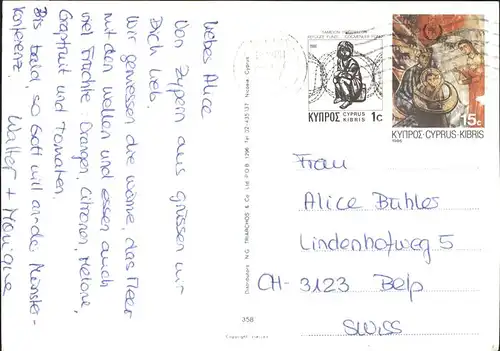 Liebes Alice
Von Zypern aus grüssen wir
Dich lieb.
Wir geniessen die Wärme, das Meer
mit den Wellen und essen auch
viel Früchte: Orangen, Citronen, Melone,
Grapfruit und Tomaten.
Bis bald, so Gott will an der Münster-
konferenz.
Walter + Monique
Distributors N.G. TRIARCHOS & Co. Ltd P.O.B. 1296 Tel. 02-435137 Nicosia Cyprus
358
Copyright
REFUGEE FUND
ΚΥΠΡΟΣ CYPRUS
KIBRIS 1c
15c
ΚΥΠΡΟΣ·CYPRUS·KIBRIS
1986
Frau
Alice Bühler
Lindenhofweg 5
CH-3123 Belp
SWISS